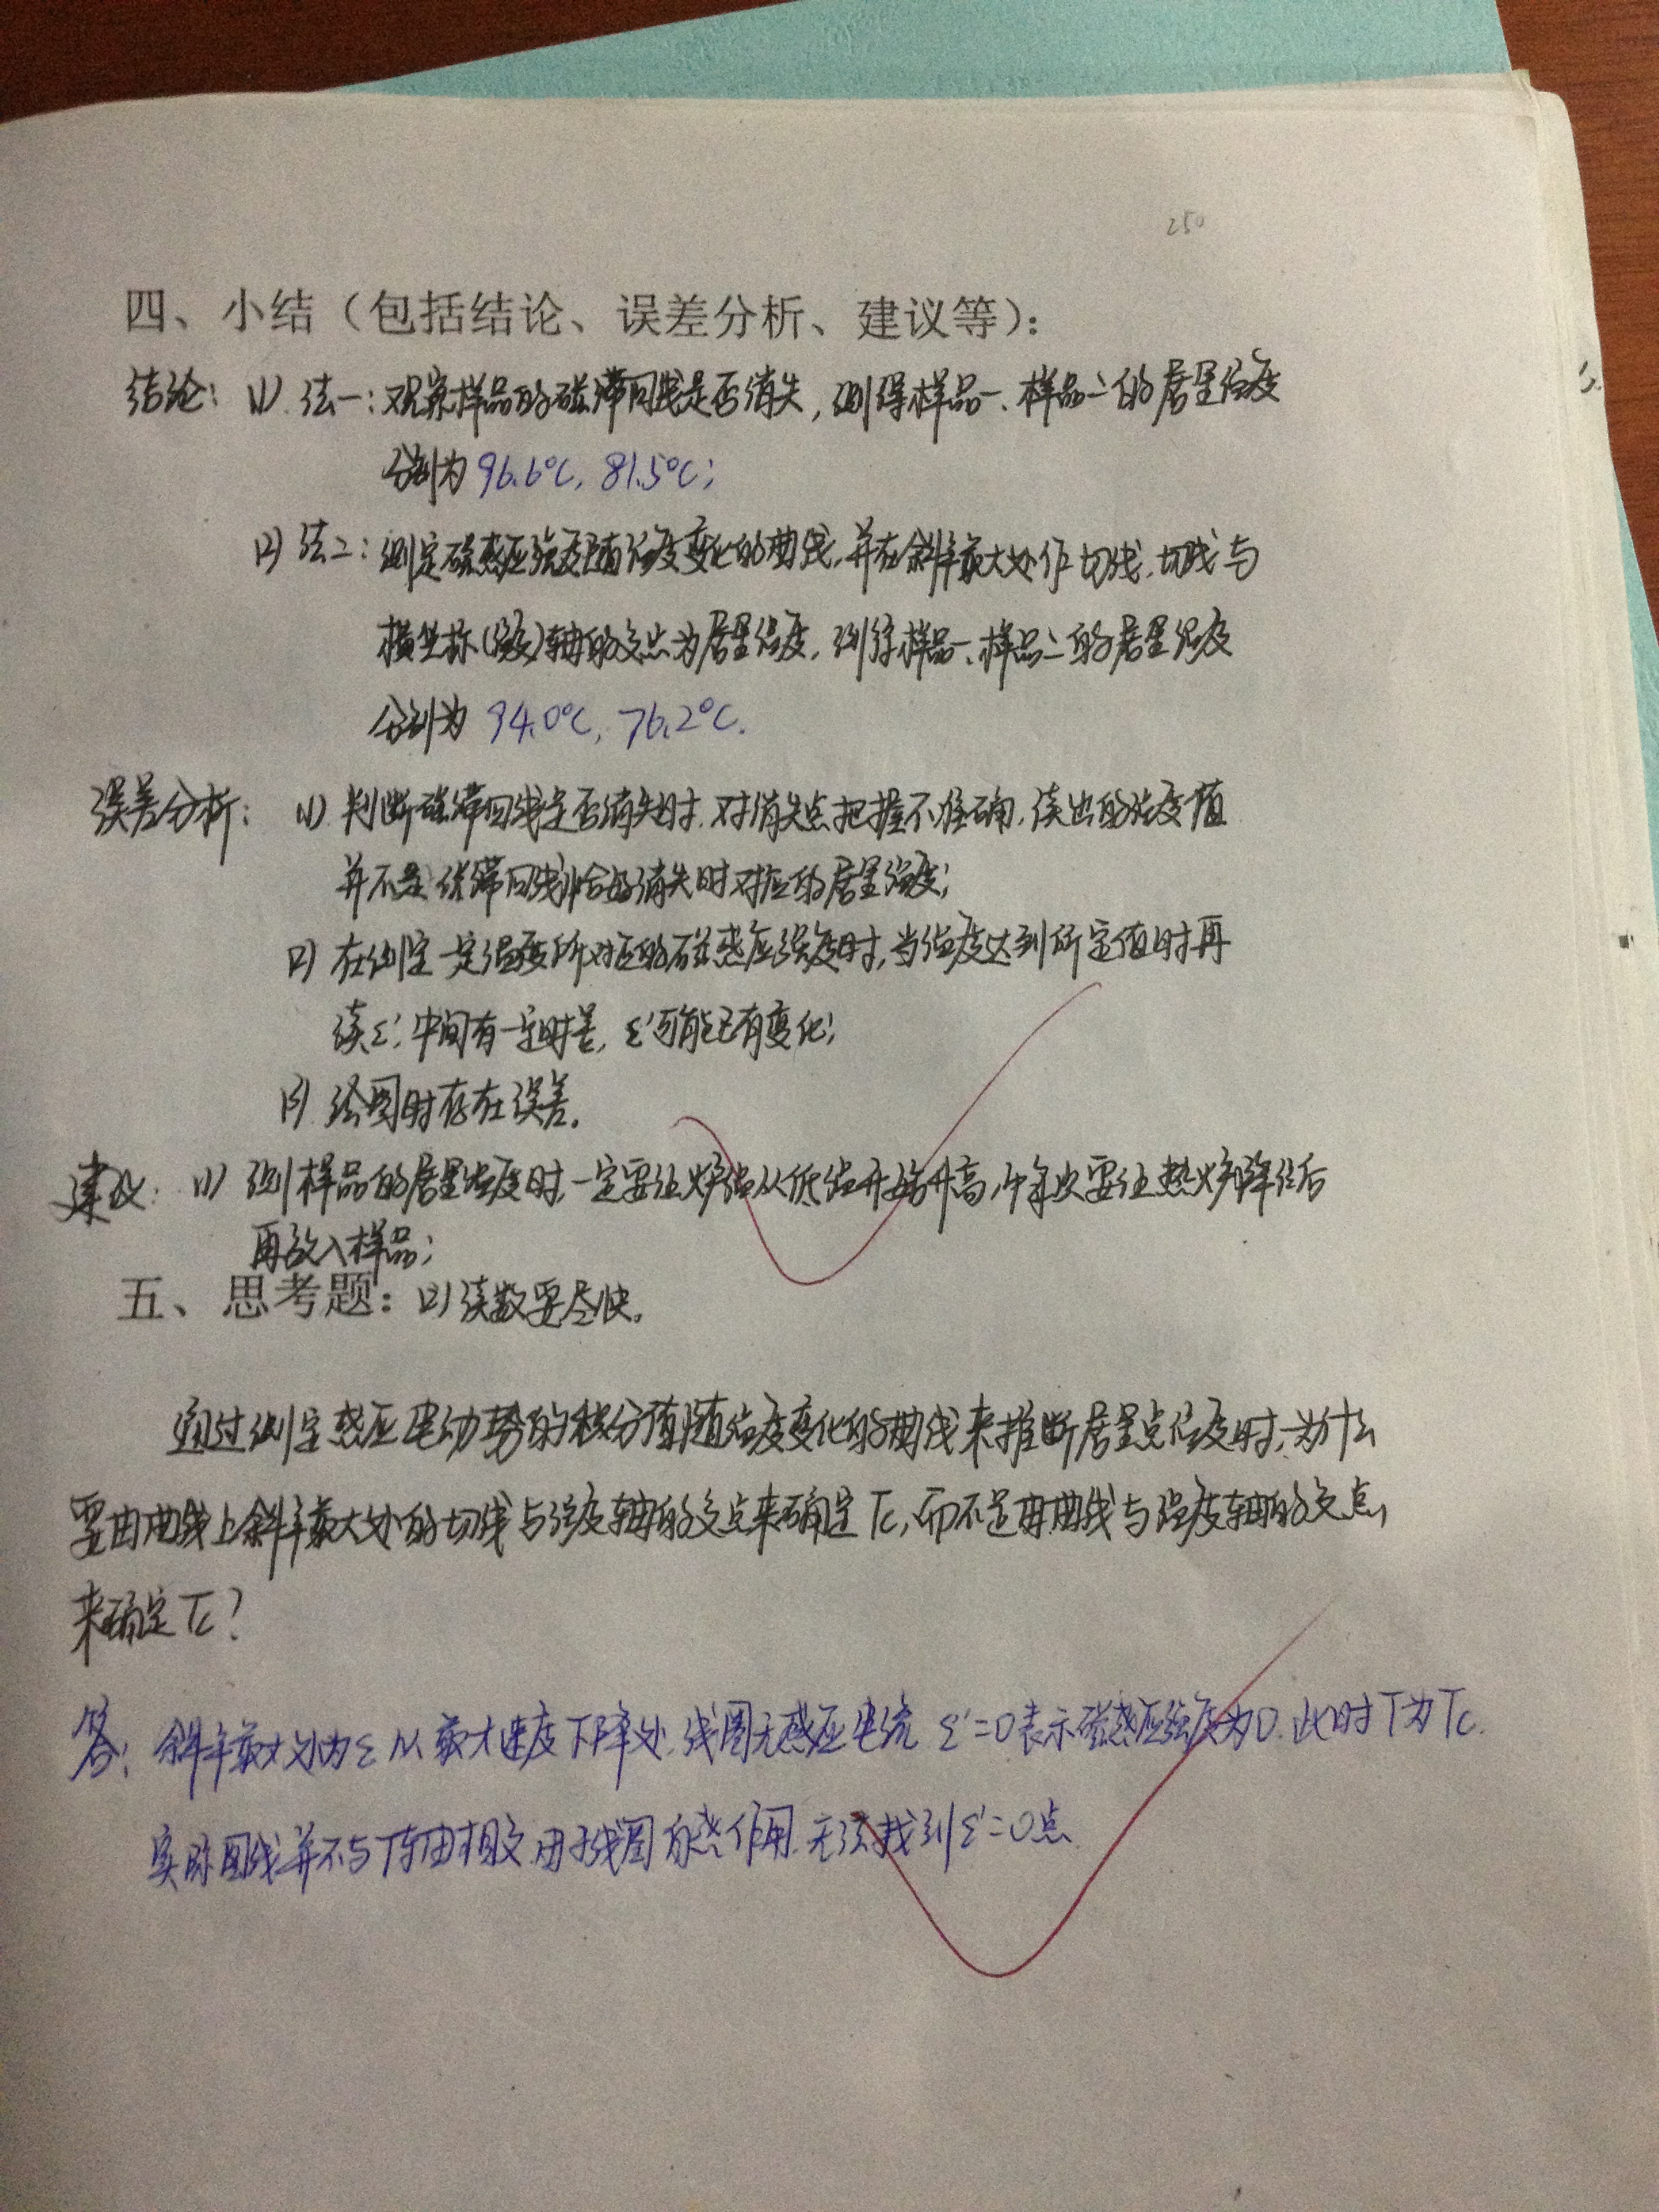 250
四、小结（包括结论、误差分析、建议等）：
结论：(1) 法一：观察样品的磁滞回线是否消失，测得样品一、样品二的居里温度
分别为 96.6℃, 81.5℃；
(2) 法二：测定磁感应强度随温度变化的曲线，并在斜率最大处作切线，切线与
横坐标(温度)轴的交点为居里温度，测得样品一、样品二的居里温度
分别为 94.0℃, 76.2℃.
误差分析：(1) 判断磁滞回线是否消失时，对消失点把握不准确，读出的温度值
并不是磁滞回线恰好消失时对应的居里温度；
(2) 在测定一定温度所对应的磁感应强度时，当温度达到所定值时再
读ε'，中间有一定时差，ε'可能已有变化；
(3) 绘图时存在误差。
建议：(1) 测样品的居里温度时，一定要让炉温从低温开始升高，即每次要让热炉降温后
再放入样品；
五、思考题：(2) 读数要尽快。
通过测定感应电动势的积分值随温度变化的曲线来推断居里点温度时，为什么
要由曲线上斜率最大处的切线与温度轴的交点来确定Tc，而不是由曲线与温度轴的交点
来确定Tc？
答：斜率最大处为ε以最大速度下降处，线圈无感应电流 ε'=0表示磁感应强度为0. 此时T为Tc.
实际图线并不与T轴相交，由于线圈自感作用，无法找到ε'=0点